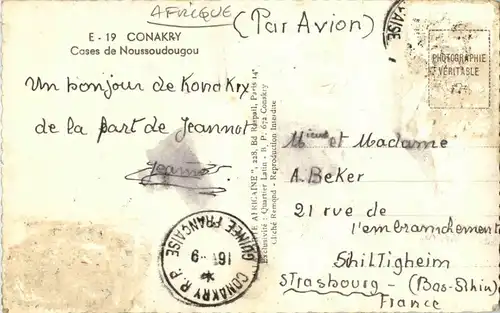 AFRIQUE
(Par Avion)
E - 19 CONAKRY
Cases de Noussoudougou
PHOTOGRAPHIE
VÉRITABLE
Un bonjour de Konakry
de la part de Jeannot
Jeannot
AFRICAINE", 228, Bd Raspail, Paris 14e
Exclusivité - Quartier Latin - B. P. 672 Conakry
Cliché Remond - Reproduction Interdite
et Madame
A. Beker
21 rue de
l'embranchement
Schiltigheim
Strasbourg - (Bas-Rhin)
France
CONAKRY R.P.
GUINÉE FRANÇAISE